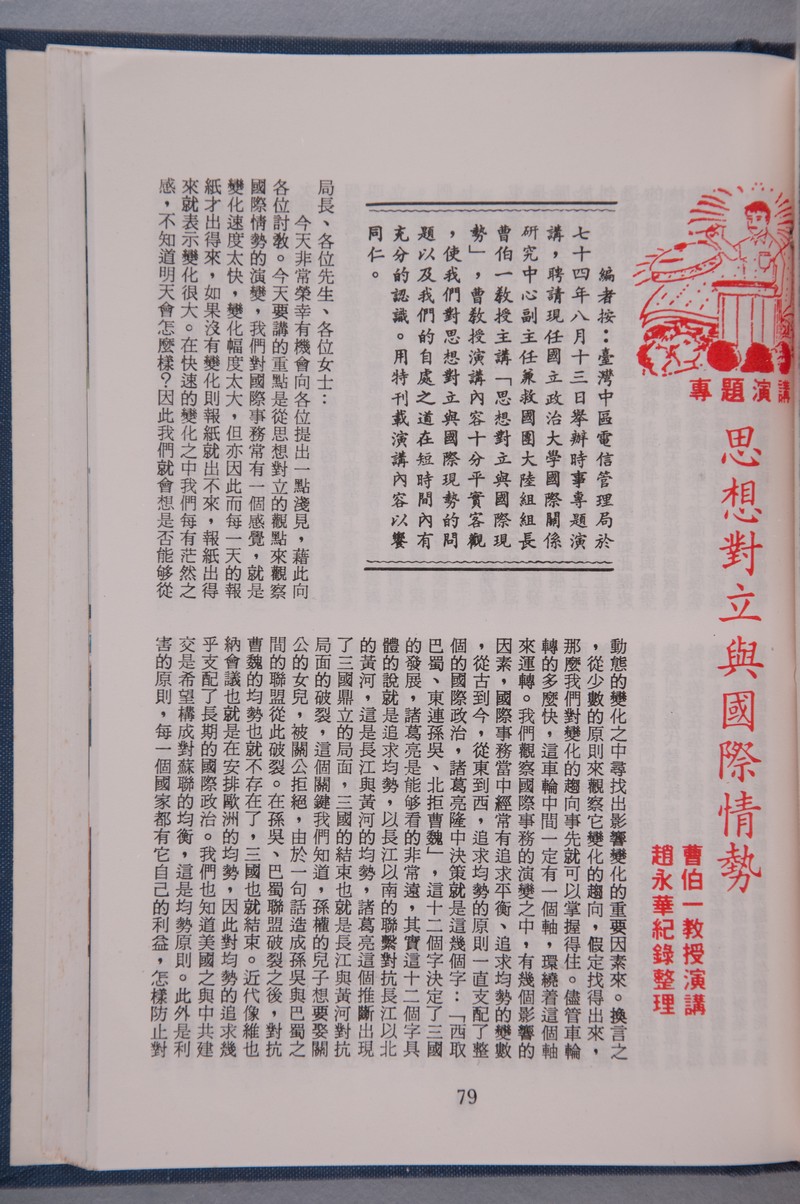 專題演講
思想對立與國際情勢
曹伯一教授演講
趙永華紀錄整理
編者按：臺灣中區電信管理局於
七十四年八月十三日舉辦時事專題演
講，聘請現任國立政治大學國際關係
研究中心副主任兼救國團大陸組組長
曹伯一教授主講「思想對立與國際現
勢」，曹教授演講內容十分平實客觀
，使我們對思想對立與國際現勢的問
題以及我們的自處之道在短時間內有
充分的認識。用特刊載演講內容以饗
同仁。
局長、各位先生、各位女士：
今天非常榮幸有機會向各位提出一點淺見，藉此向
各位討教。今天要講的重點是從思想對立的觀點來觀察
國際情勢的演變，我們對國際事務常有一個感覺，就是
變化速度太快，變化幅度太大，但亦因此而每一天的報
紙才出得來，如果沒有變化則報紙就出不來，報紙出得
來就表示變化很大。在快速的變化之中我們每有茫然之
感，不知道明天會怎麼樣？因此我們就會想是否能够從
動態的變化之中尋找出影響變化的重要因素來。換言之
，從少數的原則來觀察它變化的趨向，假定找得出來，
那麼我們對變化的趨向事先就可以掌握得住。儘管車輪
轉的多麼快，這車輪中間一定有一個軸，環繞着這個軸
來運轉。我們觀察國際事務的演變之中，有幾個影響的
因素，國際事務當中經常有追求平衡、追求均勢的變數
，從古到今，從東到西，追求均勢的原則一直支配了整
個的國際政治，諸葛亮隆中決策就是這幾個字：「西取
巴蜀、東連孫吳、北拒曹魏」，這十二個字決定了三國
的發展，諸葛亮是能够看的非常遠，其實這十二個字具
體的說就是追求均勢，以長江以南的聯繫對抗長江以北
的黃河，這是長江與黃河的均勢，諸葛亮這個推斷出現
了三國鼎立的局面，三國的結束也就是長江與黃河對抗
局面的破裂，這個關鍵我們知道，孫權的兒子想要娶關
公的女兒，被關公拒絕，由於一句話造成孫吳與巴蜀之
間的聯盟從此破裂。在孫吳、巴蜀聯盟破裂之後，對抗
曹魏的均勢也就不存在了，三國也就結束。近代像維也
納會議也就是在安排歐洲的均勢，因此對均勢的追求幾
乎支配了長期的國際政治。我們也知道美國之與中共建
交是希望構成對蘇聯的均衡，這是均勢原則。此外是利
害的原則，每一個國家都有它自己的利益，怎樣防止對
79